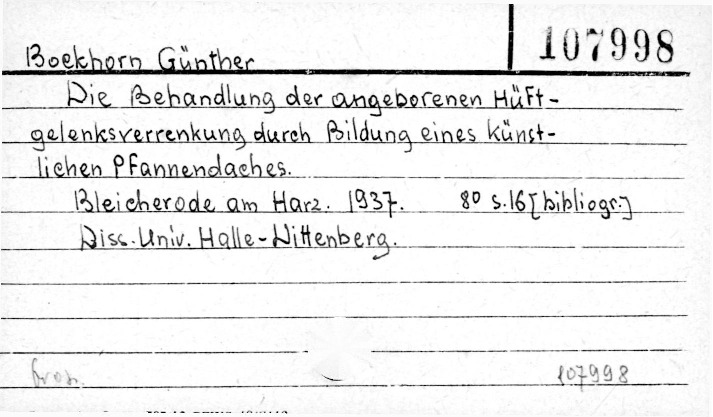 Boekhorn Günther
107998
Die Behandlung der angeborenen Hüft-
gelenksverrenkung durch Bildung eines künst-
lichen Pfannendaches.
Bleicherode am Harz. 1937. 8° s.16 [bibliogr.]
Diss. Univ. Halle-Wittenberg.
107998